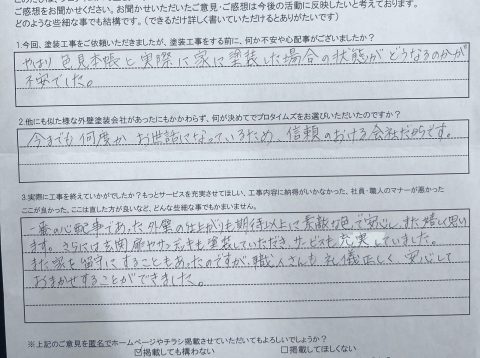 ご感想をお聞かせください。お聞かせいただいたご意見・ご感想は今後の活動に反映したいと考えております。
どのような些細な事でも結構です。(できるだけ詳しく書いていただけるとありがたいです)
1.今回、塗装工事をご依頼いただきましたが、塗装工事をする前に、何か不安や心配事がございましたか?
やはり色見本帳と実際に家に塗装した場合の状態がどうなるのかが
不安でした。
2.他にも似た様な外壁塗装会社があったにもかかわらず、何が決めてでプロタイムズをお選びいただいたのですか?
今までも何度かお世話になっているため、信頼のおける会社だからです。
3.実際に工事を終えていかがでしたか?もっとサービスを充実させてほしい、工事内容に納得がいかなかった、社員・職人のマナーが悪かった
ここが良かった、ここは直した方が良いなど、どんな些細な事でもかまいません。
一番の心配事であった外壁の仕上がりも期待以上に素敵な色で安心し、また嬉しく思い
ます。さらには玄関扉やサッシデッキも塗装していただき、サービスも充実していました。
また家を留守にすることもあったのですが、職人さんも礼儀正しく、安心して
おまかせすることができました。
※上記のご意見を匿名でホームページやチラシ掲載させていただいてもよろしいでしょうか?
☑掲載しても構わない □掲載してほしくない